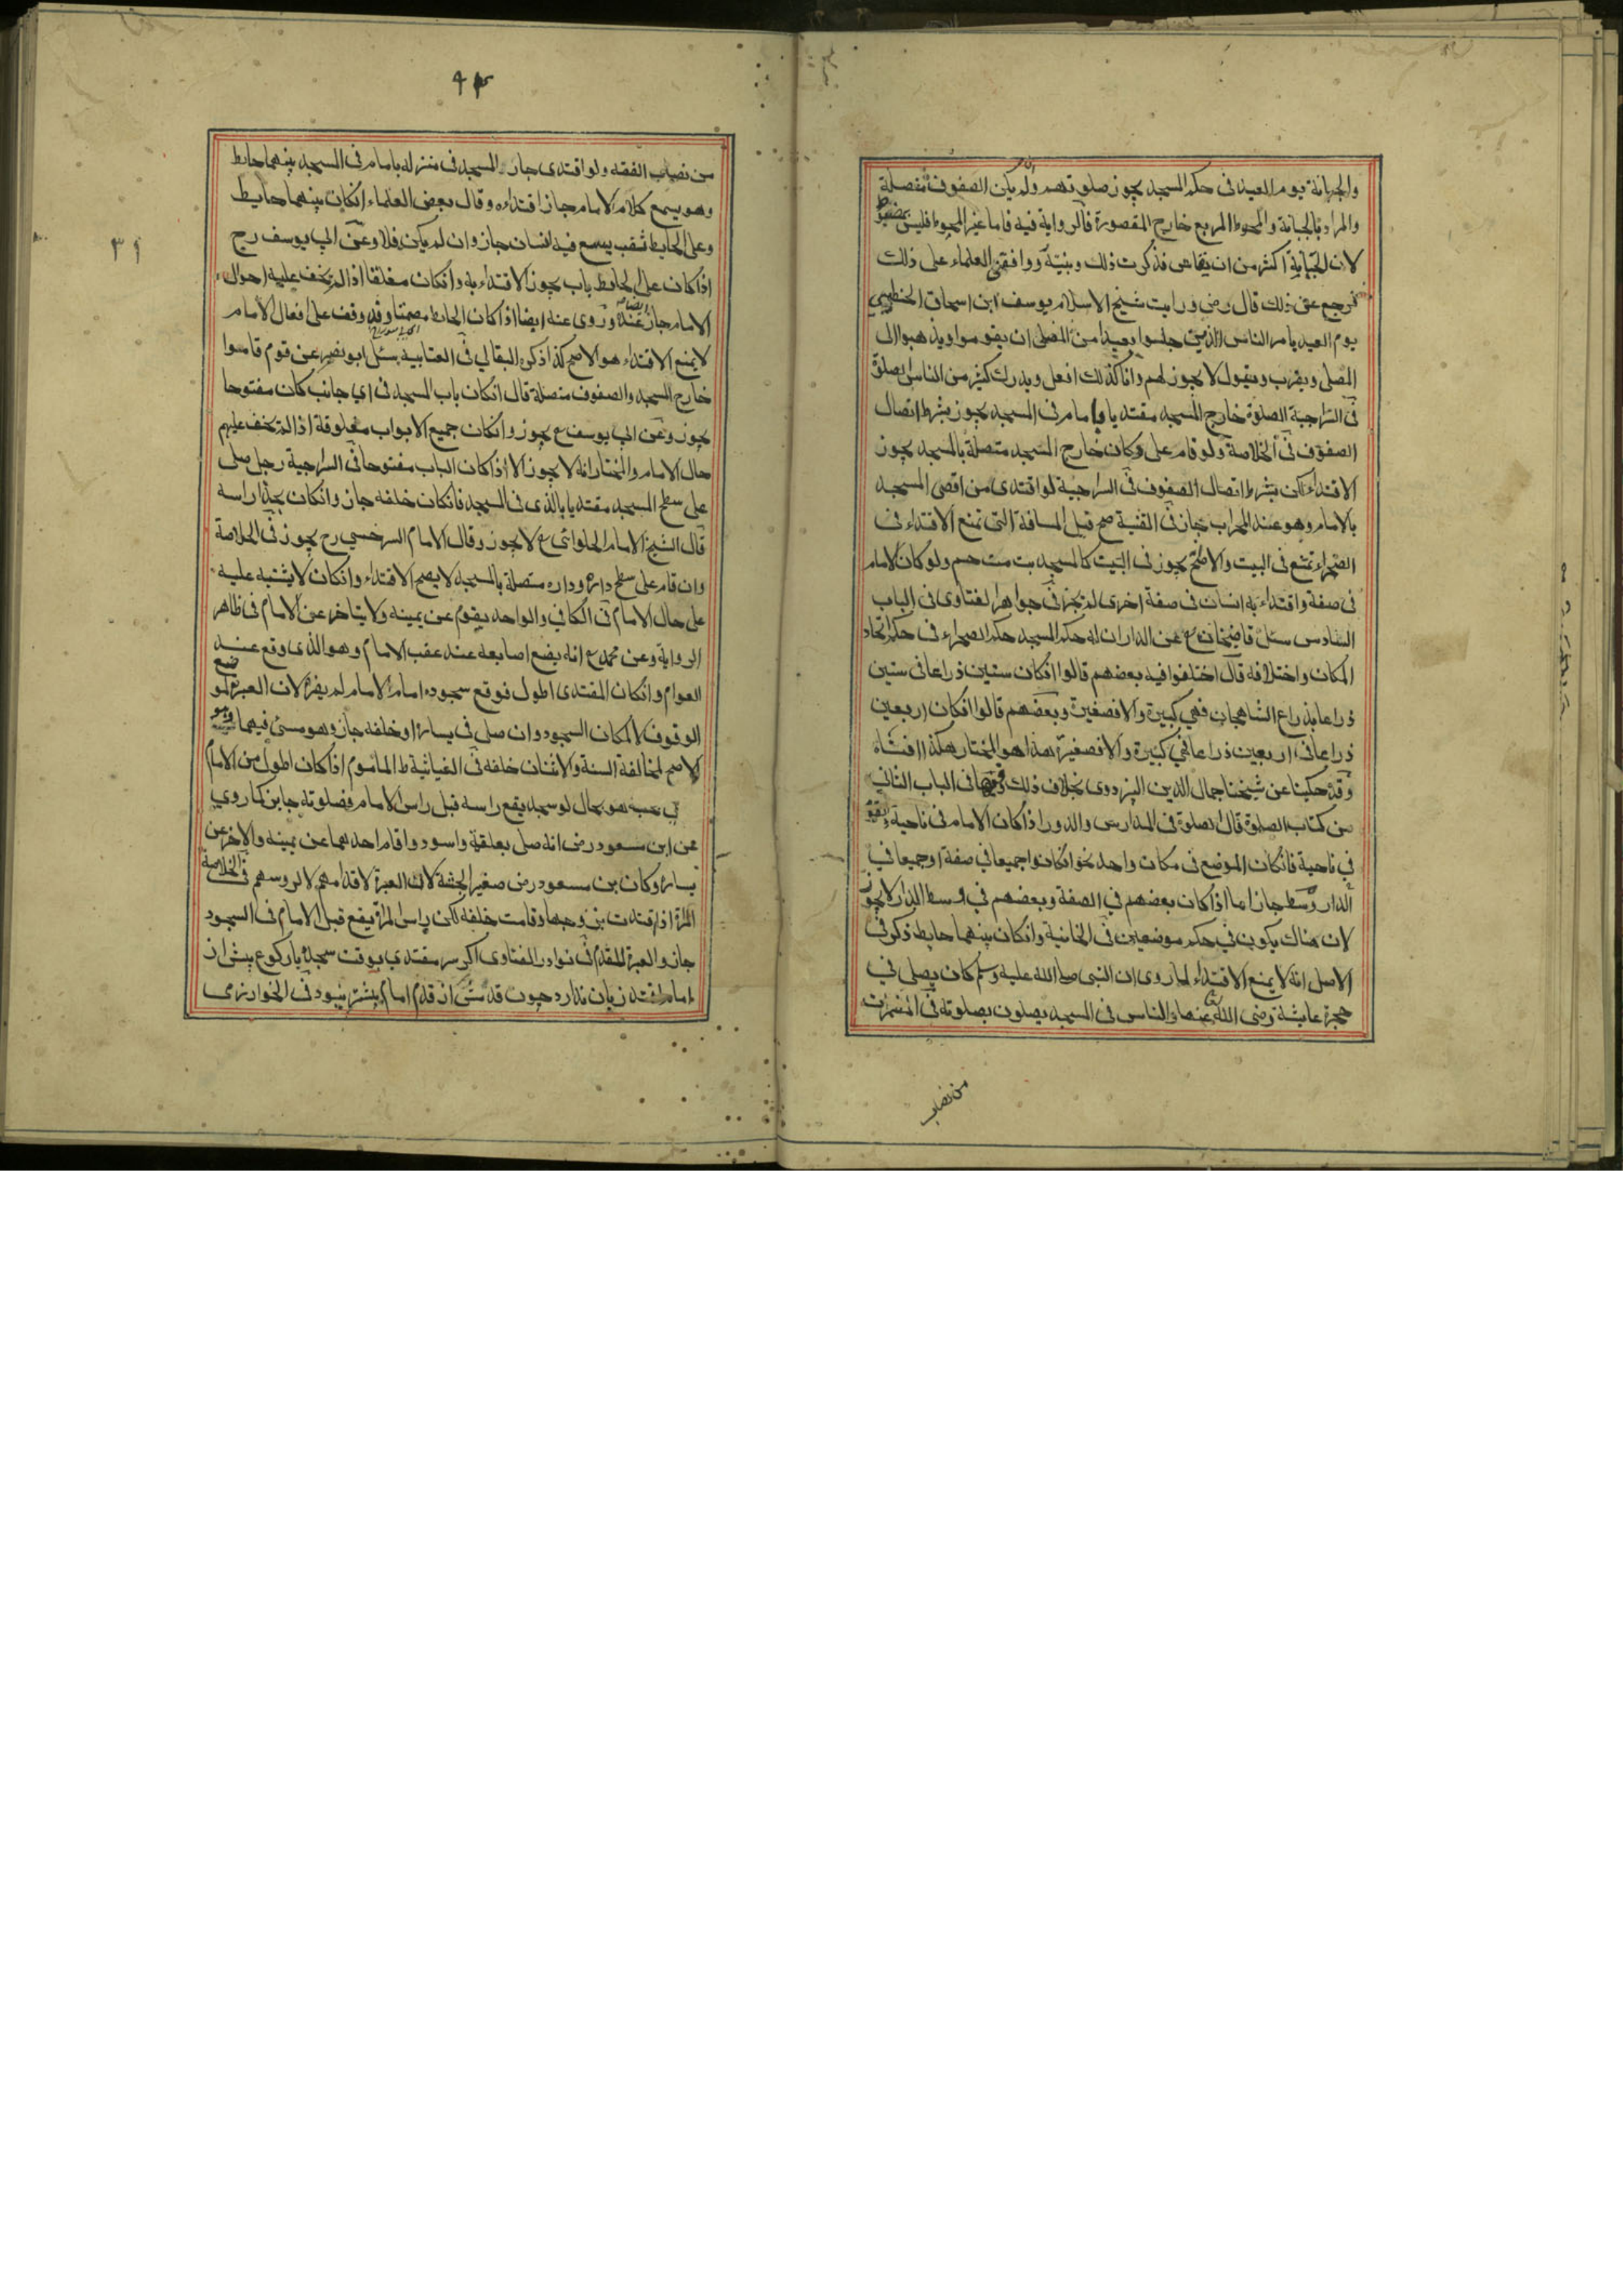 والجبانة يوم العيد فى حكم المسجد يجوز صلوتهم وان لم يكن الصفوف متصلة
والمراد بالجبانة والمحوط المربع خارج المقصورة فالرواية فيه فاما غير المحوط فليس
لان الجبانة اكثر من ان يقاس فذكرت ذلك وبينته ووافقنى العلماء على ذلك
فرجع عن ذلك قال رضى ورايت شيخ الاسلام يوسف ابن اسحاق الخطيبي
يوم العيد يامر الناس الذين جلسوا بعيدا من المصلى ان يقوموا ويذهبوا الى
المصلى ويقرب ويقول لا يجوز لهم وانا كذلك افعل ويدرك كثير من الناس الصلوة
فى السراجية الصلوة خارج المسجد مقتديا بامام فى المسجد يجوز بشرط اتصال
الصفوف فى الخلاصة ولو قام على دكان خارج المسجد متصلة بالمسجد يجوز
الاقتداء لكن بشرط اتصال الصفوف فى السراجية لو اقتدى من اقصى المسجد
بالامام وهو عند المحراب جاز فى القنية صح قيل المسافة التى تمنع الاقتداء فى
الصحراء تمنع فى البيت والاصح يجوز فى البيت كالمسجد بت مت حم ولو كان الامام
فى صفة واقتداء به انسان فى صفة اخرى لم يجز فى جواهر الفتاوى فى الباب
السادس سئل قاضيخان ع عن الدار ان له حكم المسجد حكم الصحراء فى حكم اتحاد
المكان واختلافه قال اختلفوا فيه بعضهم قالوا انكان ستين ذراعا فى ستين
ذراعا بذراع الشاهجان فهي كبيرة والا فصغيرة وبعضهم قالوا انكان اربعين
ذراعا فى اربعين ذراعا فهي كبيرة والا فصغيرة هذا هو المختار هكذا افتناه
وقد حكينا عن شيخنا جمال الدين البزدوى بخلاف ذلك وفيها فى الباب الثانى
من كتاب الصلوة قال الصلوة فى المدارس والدور اذا كان الامام فى ناحية والقوم
في ناحية فانكان الموضع فى مكان واحد نحو انكانوا جميعا في صفة او جميعا في
الدار وسط جاز اما اذا كان بعضهم في الصفة وبعضهم في وسط الدار لا يجوز
لان هناك يكون في حكم موضعين فى الخانية وانكان بينهما حايط ذكر فى
الاصل انه لا يمنع الاقتداء لما روى ان النبى صلى الله عليه وسلم كان يصلى في
حجرة عايشة رضى الله عنها والناس فى المسجد يصلون بصلوته فى المضمرات
من نصاب
من نصاب الفقه ولو اقتدى جار المسجد فى منزله بامام فى المسجد بينهما حايط
وهو يسمع كلام الامام جاز اقتداءه وقال بعض العلماء انكان بينهما حايط
وعلى الحايط ثقب يسع فيه انسان جاز وان لم يكن فلا وعن ابي يوسف رح
اذا كان على الحايط باب يجوز الاقتداء به وانكان مغلقا اذا لم يخف عليه احوال
الامام جاز عنده وروى عنه ايضا اذا كان الحايط مصمتا وقد وقف على افعال الامام
لا يمنع الاقتداء هو الاصح كذا ذكره البقالي فى العتابية سئل ابو نصر عن قوم قاموا
خارج المسجد والصفوف متصلة قال انكان باب المسجد فى اي جانب كان مفتوحا
يجوز وعن ابي يوسف ع يجوز وانكان جميع الابواب مغلوقة اذا لم يخف عليهم
حال الامام والمختار انه لا يجوز الا اذا كان الباب مفتوحا فى السراجية رجل صلى
على سطح المسجد مقتديا بالذى فى المسجد فانكان خلفه جاز وانكان بحذاء راسه
قال الشيخ الامام الحلوائى ع لا يجوز وقال الامام السرخسي رح يجوز فى الخلاصة
وان قام على سطح داره وداره متصلة بالمسجد لا يصح الاقتداء وانكان لا يشتبه عليه
على حال الامام فى الكافي والواحد يقوم عن يمينه ولا يتاخر عن الامام فى ظاهر
الرواية وعن محمد ع انه يضع اصابعه عند عقب الامام وهو الذى وقع عند
العوام وانكان المقتدى اطول فوقع سجوده امام الامام لم يضره لان العبرة لموضع
الوقوف لا لمكان السجود وان صلى فى يساره او خلفه جاز وهو مسئ فيهما
الاصح لمخالفة السنة والاثنان خلفه فى الغياثية ط الماموم اذا كان اطول من الامام
هو بحال لو سجد يقع راسه قبل راس الامام فصلوته جايزة كما روي
عن ابن مسعود رض انه صلى بعلقمة واسود واقام احدهما عن يمينه والاخر عن
يساره وكان بن مسعود رض صغير الجثة كذلك العبرة لاقدامهم لا لروسهم فى الخلاصة
المراة اذا اقتدت بزوجها وقامت خلفه لكن راس المراة يقع قبل الامام فى السجود
جاز والعبرة للقدم فى نوادر الفتاوى اكر سر مقتدي بوقت سجده يا ركوع پيش از
امام افتد زيان ندارد چون قدمش از قدم امام پيشتر نبود فى الخوارزمى